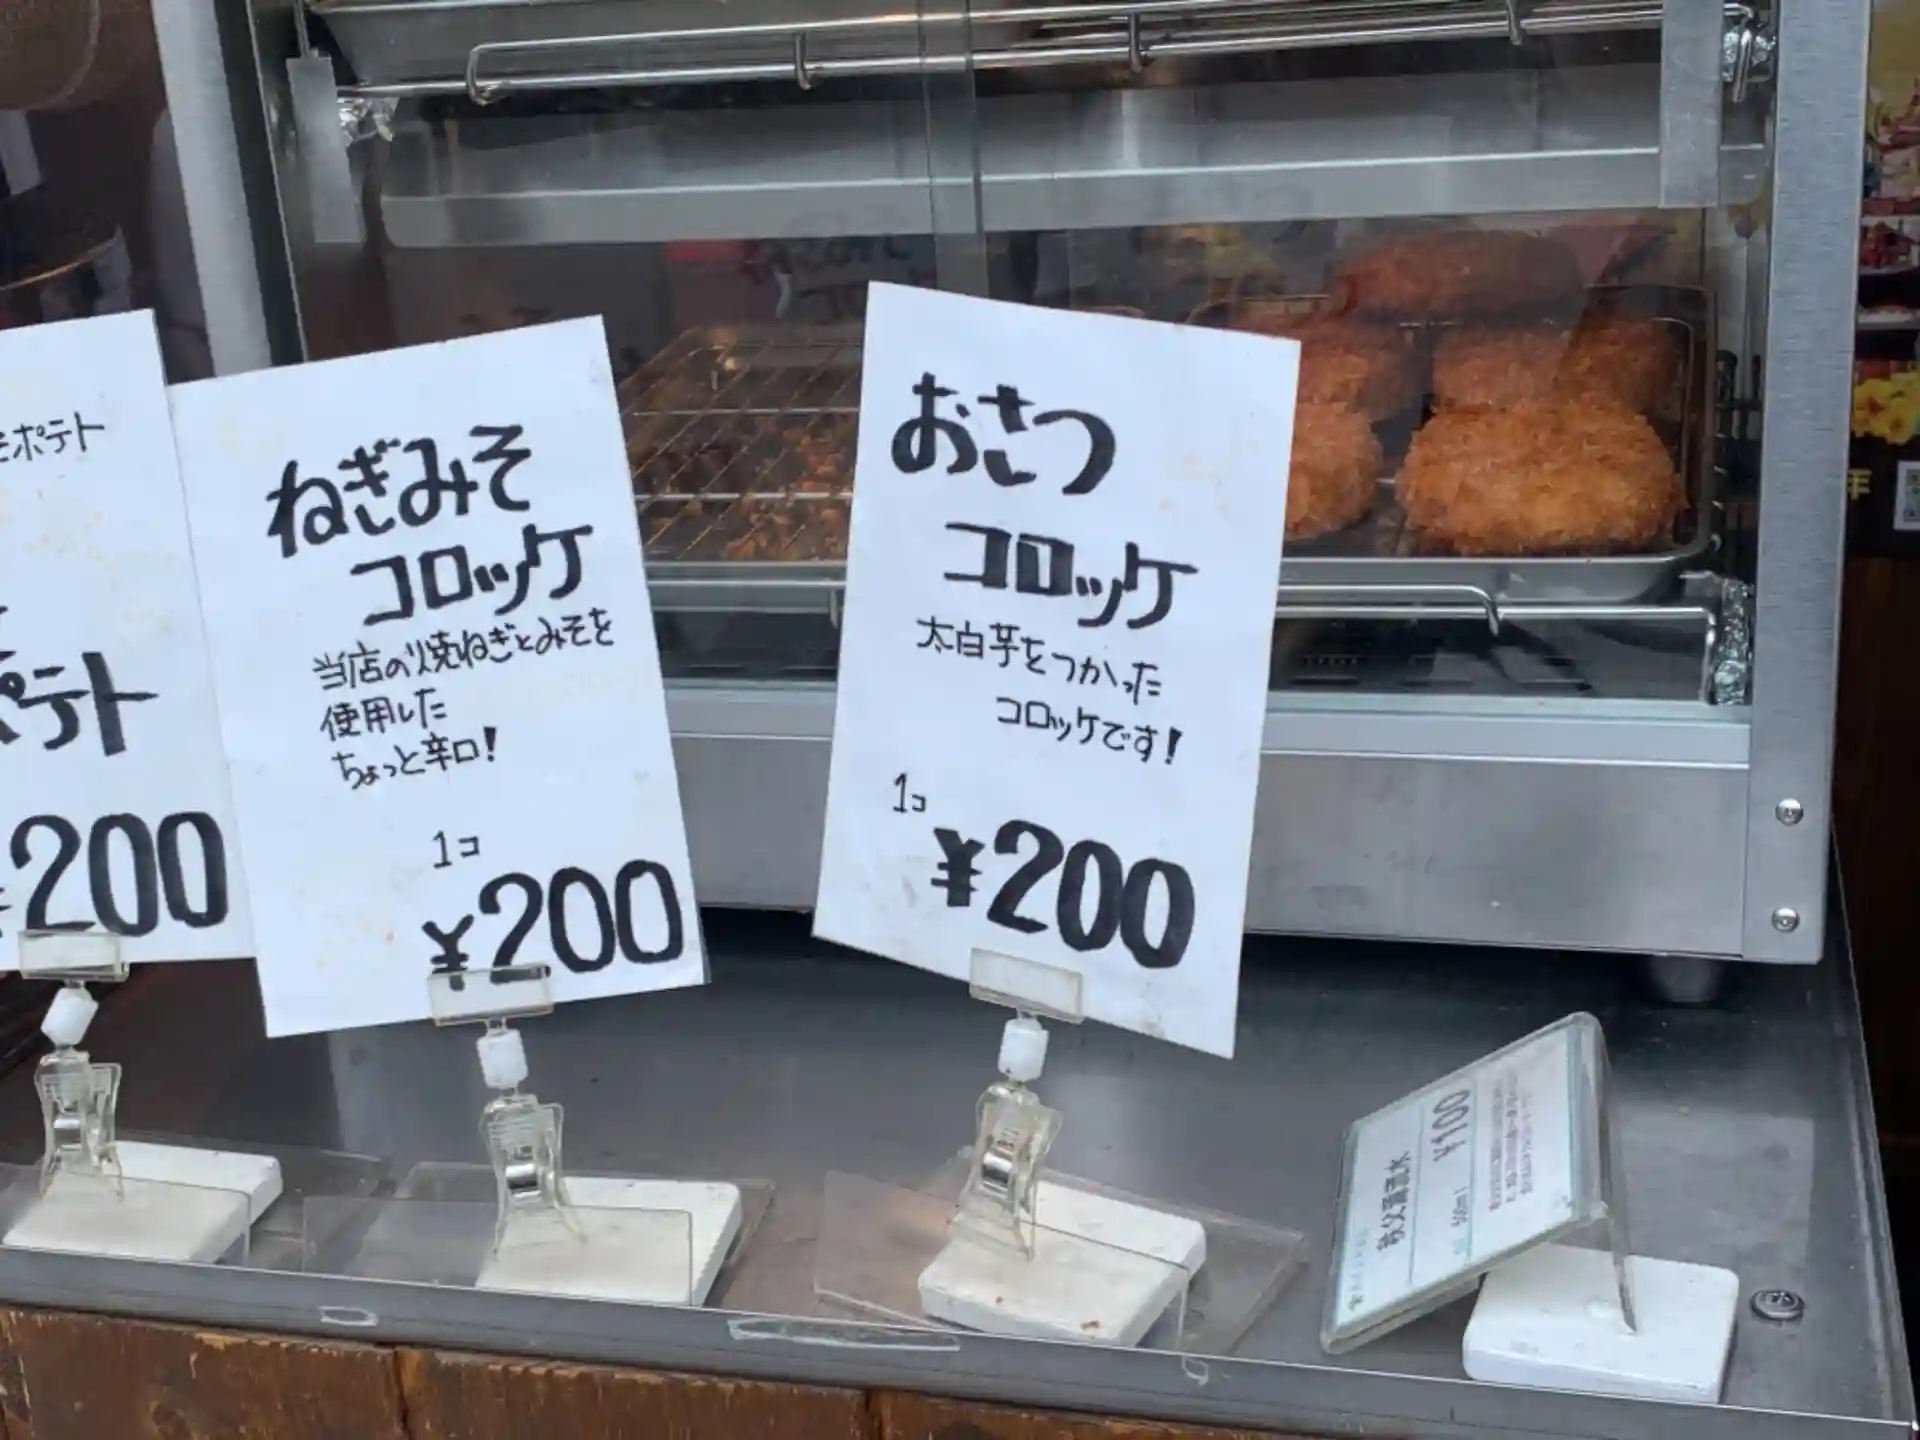 ポテト
ポテト
200
ねぎみそ
コロッケ
当店の焼ねぎとみそを
使用した
ちょっと辛口！
1コ
¥200
おさつ
コロッケ
太白芋をつかった
コロッケです！
1コ
¥200
¥100
500ml